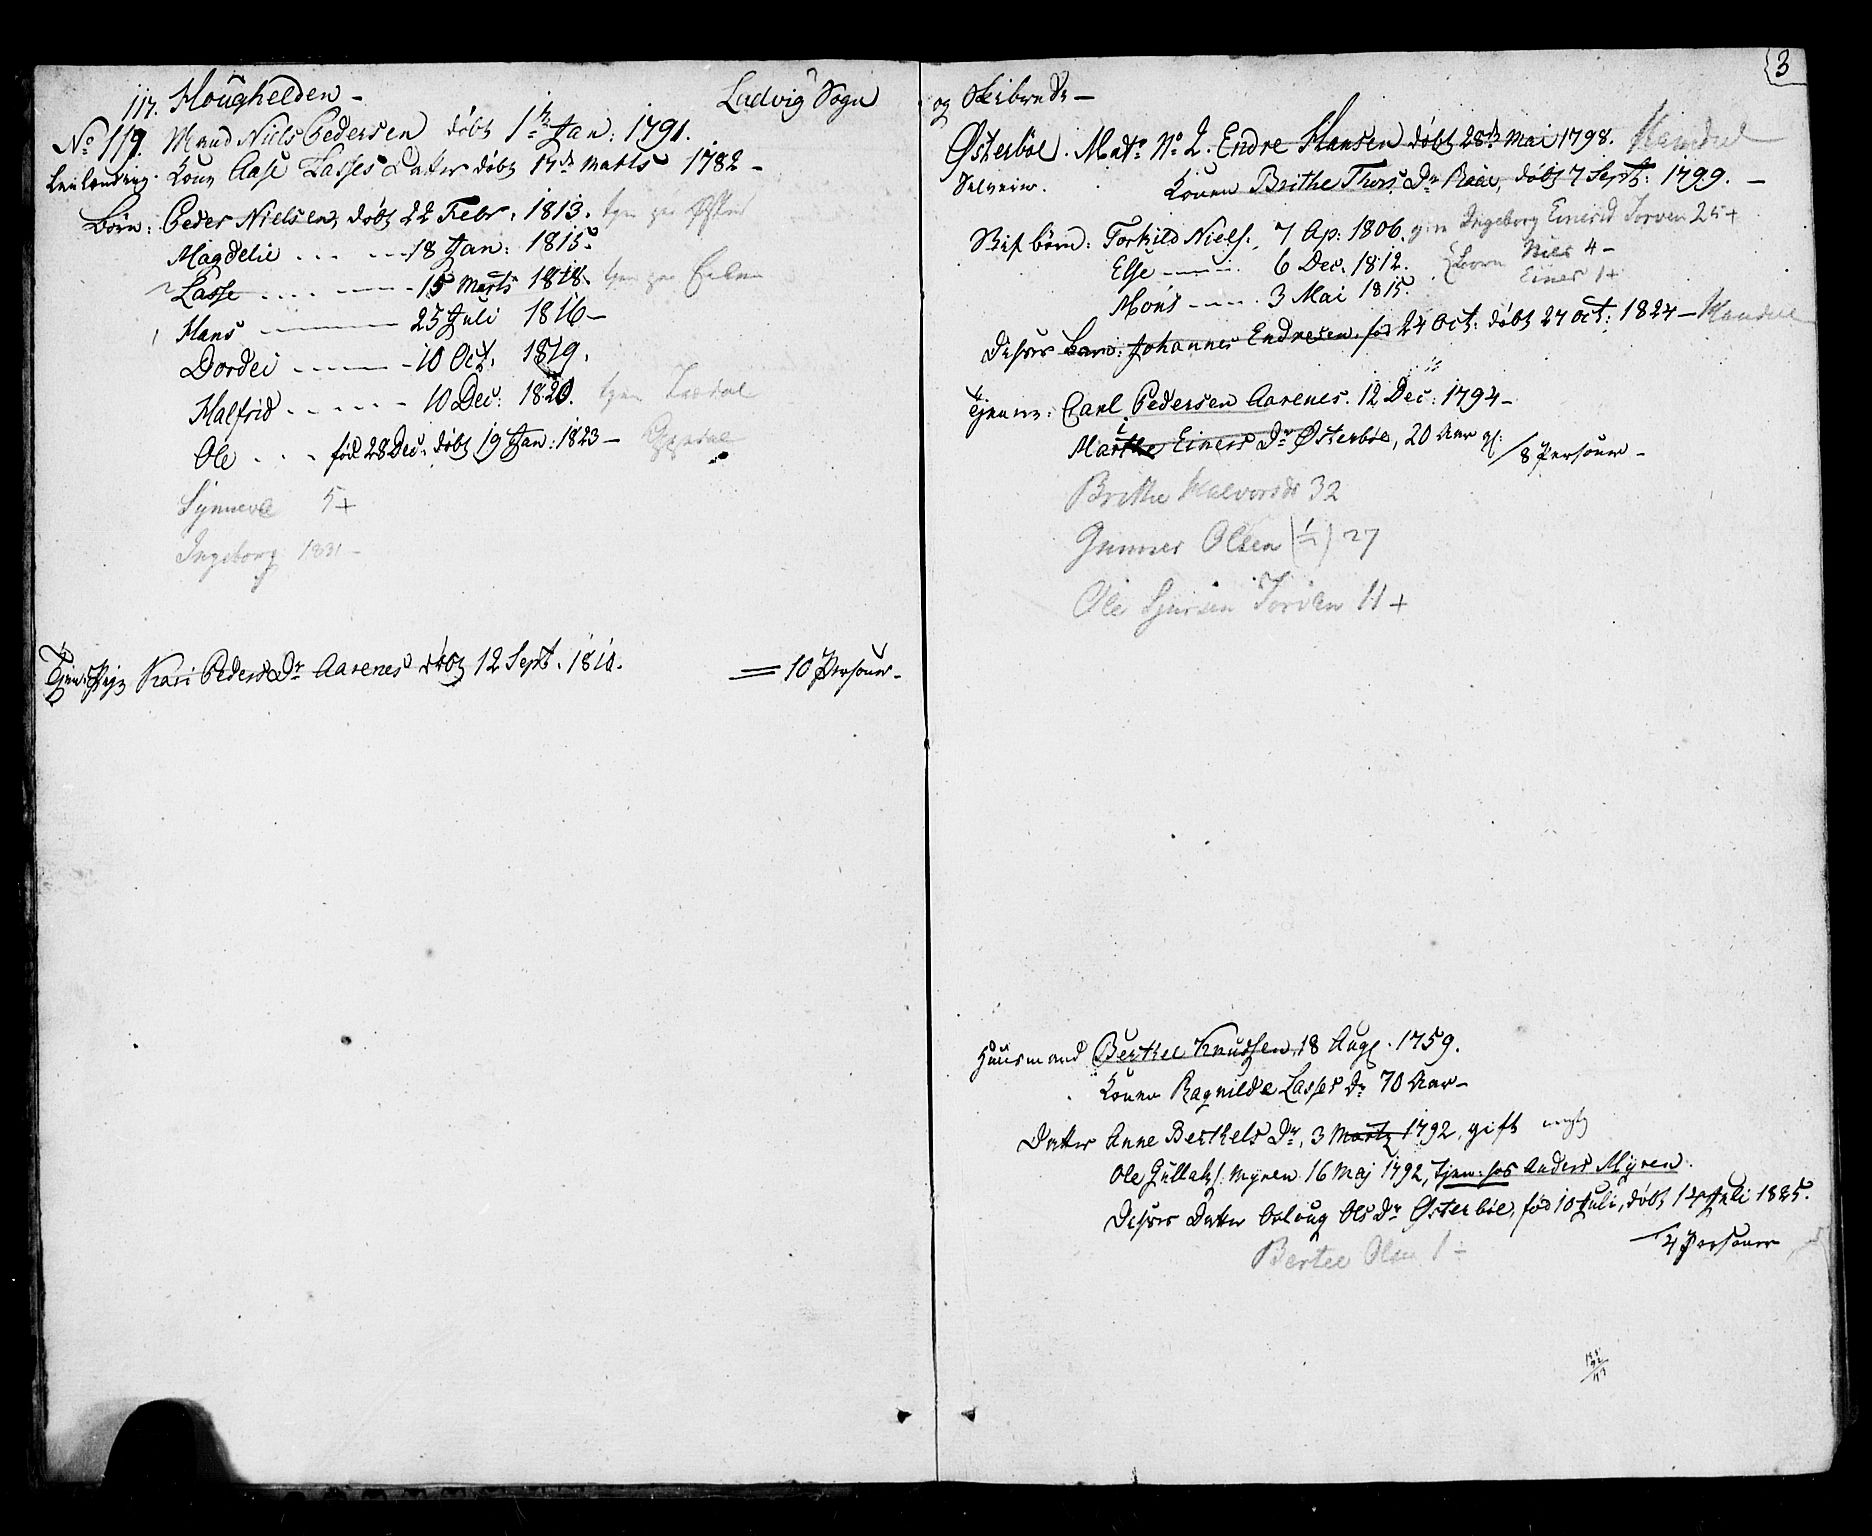 117. Höughelden -
Ladvig Sogn
No 119 Mand Niels Pedersen döbt 1te Jan: 1791.
Leilænding. Kone Aase Lasses Datter döbt 17de Marts 1782 -
Börn: Peder Nielsen, döbt 22 Febr. 1813. tjen
Magdeli . . . - - 18 Jan: 1815.
Lasse . . . . - - - 15 Marts 1818. tjen
Hans - - - - 25 Juli 1816 -
Dordei - - - - 10 Oct. 1819.
Halfrid . - - . - - 10 Dec: 1820. tjen
Ole . . . föd 28 Dec. döbt 19 Jan: 1823 -
Synneve 5 +
Ingeborg 1831 -
Tjen: Pige Kari Peders Dr Aarenes döbt 12 Sept. 1810. = 10 Personer -
3
og Skibrede -
Österböe. Matr No 2. Endre Hansen döbt 28de Mai 1798.
Selveier. Konen Brithe Thors Dr döbt 7 Sept: 1799. -
Stif börn: Torkild Niels: 7 Ap: 1806. Ingeborg Einersd Torven 25 +
Else - - - 6 Dec. 1812. Börn Niels 4 -
Einer 1 +
Mons - - - 3 Mai 1815.
Disses barn: Johannes Endresen, föd 24 Oct: döbt 27 Oct: 1824 -
Tjenere: Carl Pedersen Aarenes. 12 Dec: 1794 -
Marthe i Einers Dr Österböe, 20 Aar gl: / 8 Personer -
Brithe Halvorsdr 32
Gunner Olsen 27
Ole Torvlen 11 +
Huusmand Berthel Knudsen, 18 Aug. 1759.
Konen Ragnilde Lasses Dr 70 Aar -
Datter Anne Berthels Dr, 3 Martz 1792, gift
Ole Gullaks: Myren 16 Maj 1792, tjen: hos Anders Myren.
Disses Datter Osloug Ols Dr Österböe, föd 10 Juli, döbt 14 Juli 1825.
4 Personer
Bertel Olsen 1 -